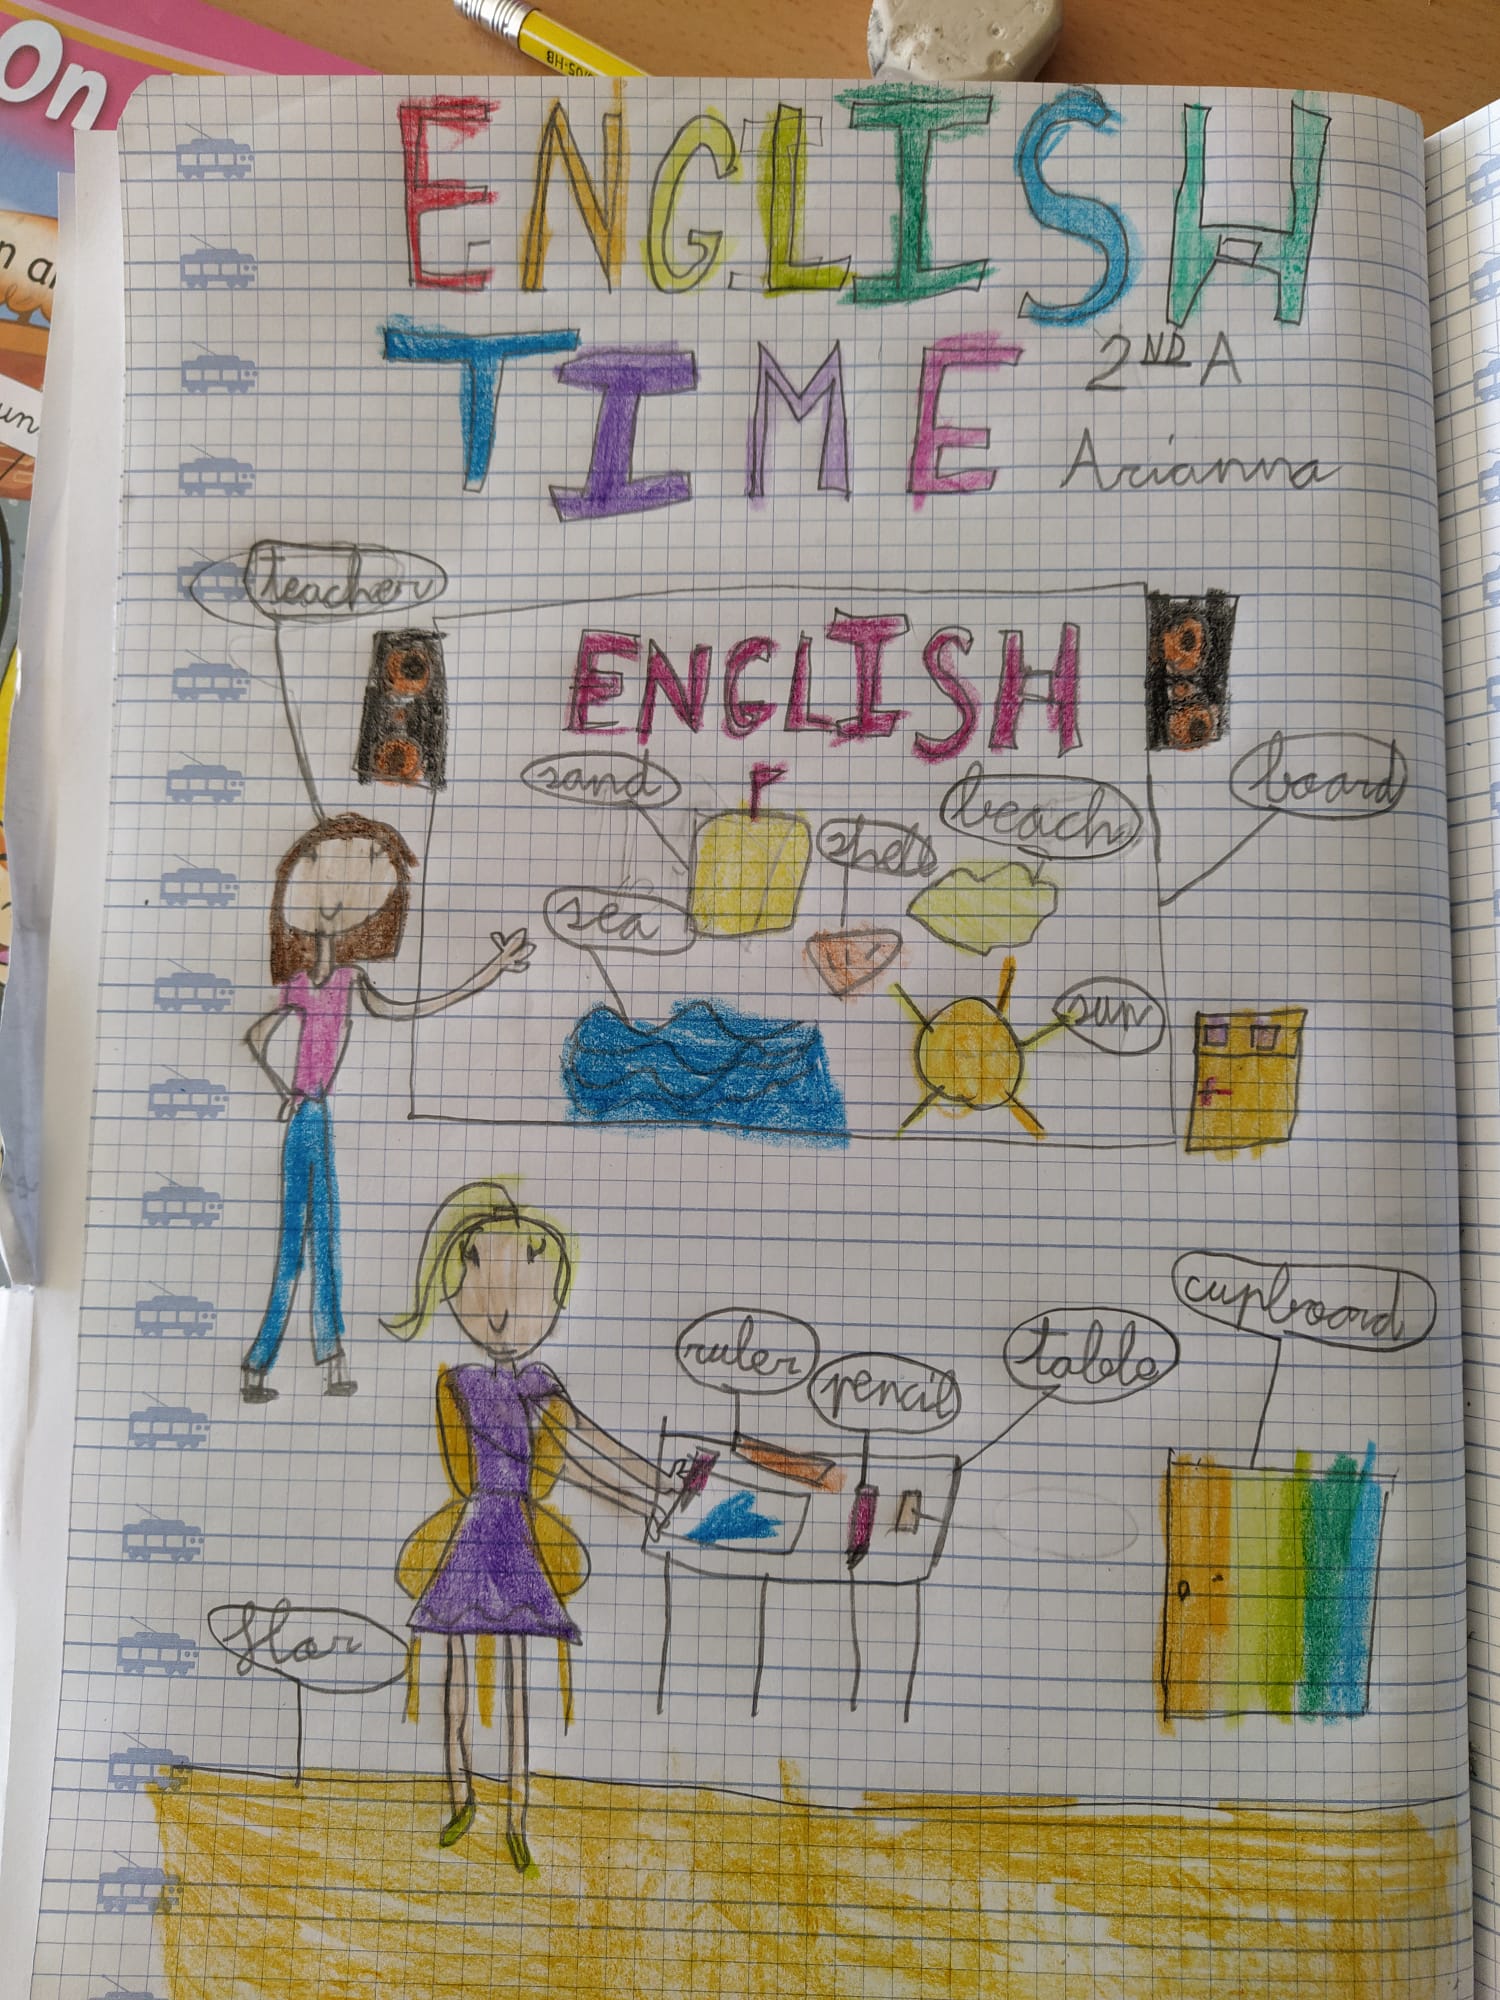 On
05-HB
n a
un
ENGLISH
TIME
2ND A
Arianna
teacher
ENGLISH
sand
beach
board
shell
sea
sun
cupboard
ruler
table
pencil
floor